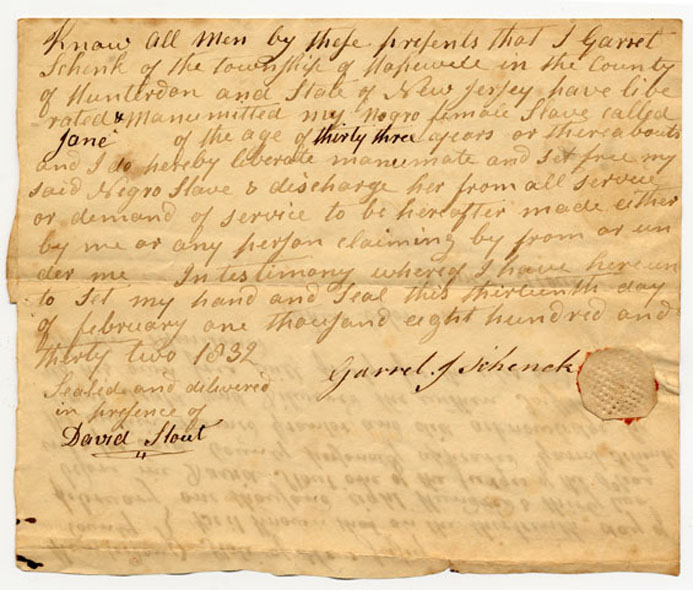 Know all Men by these presents that I Garret
Schenk of the township of Hopewell in the County
of Hunterdon and State of New Jersey have libe
rated & Manumitted my negro female Slave called
Jane of the age of thirty three years or thereabouts
and I do hereby liberate manumate and set free my
said Negro Slave & discharge her from all service
or demand of service to be hereafter made either
by me or any person claiming by from or un
der me In testimony whereof I have hereun
to set my hand and Seal this thirteenth day
of february one thousand eight hundred and
thirty two 1832
Garret J Schenck
Sealed and delivered
in presence of
David Stout